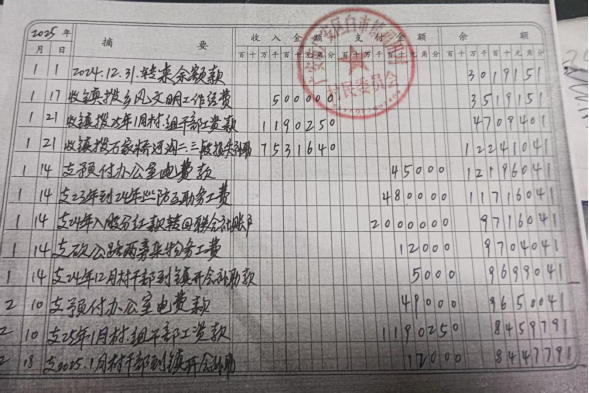 2025年 摘要 收入金额 支付金额 余额
月 日 百十万千百十元角分 百十万千百十元角分 百十万千百十元角分
1 1 2024.12.31.转来余额款 3019151
1 17 收镇拨乡风文明工作经费 500000 3519151
1 21 收镇拨25年1月村.组干部工资款 1190250 4709401
1 21 收镇拨 河沟二.三 补助 7531640 12241041
1 14 支预付办公室电费款 45000 12196041
1 14 支23年到24年 防 助务工费 480000 11716041
1 14 支24年入股分红款转回联合社账户 2000000 9716041
1 14 支 公路两旁 务工费 12000 9704041
1 14 支24年12月村干部到镇开会补助款 5000 9699041
2 10 支预付办公室电费款 49000 9650041
2 10 支25年1月村.组干部工资款 1190250 8459791
2 18 支2025.1月村干部到镇开会补助 12000 8447791
村民委员会